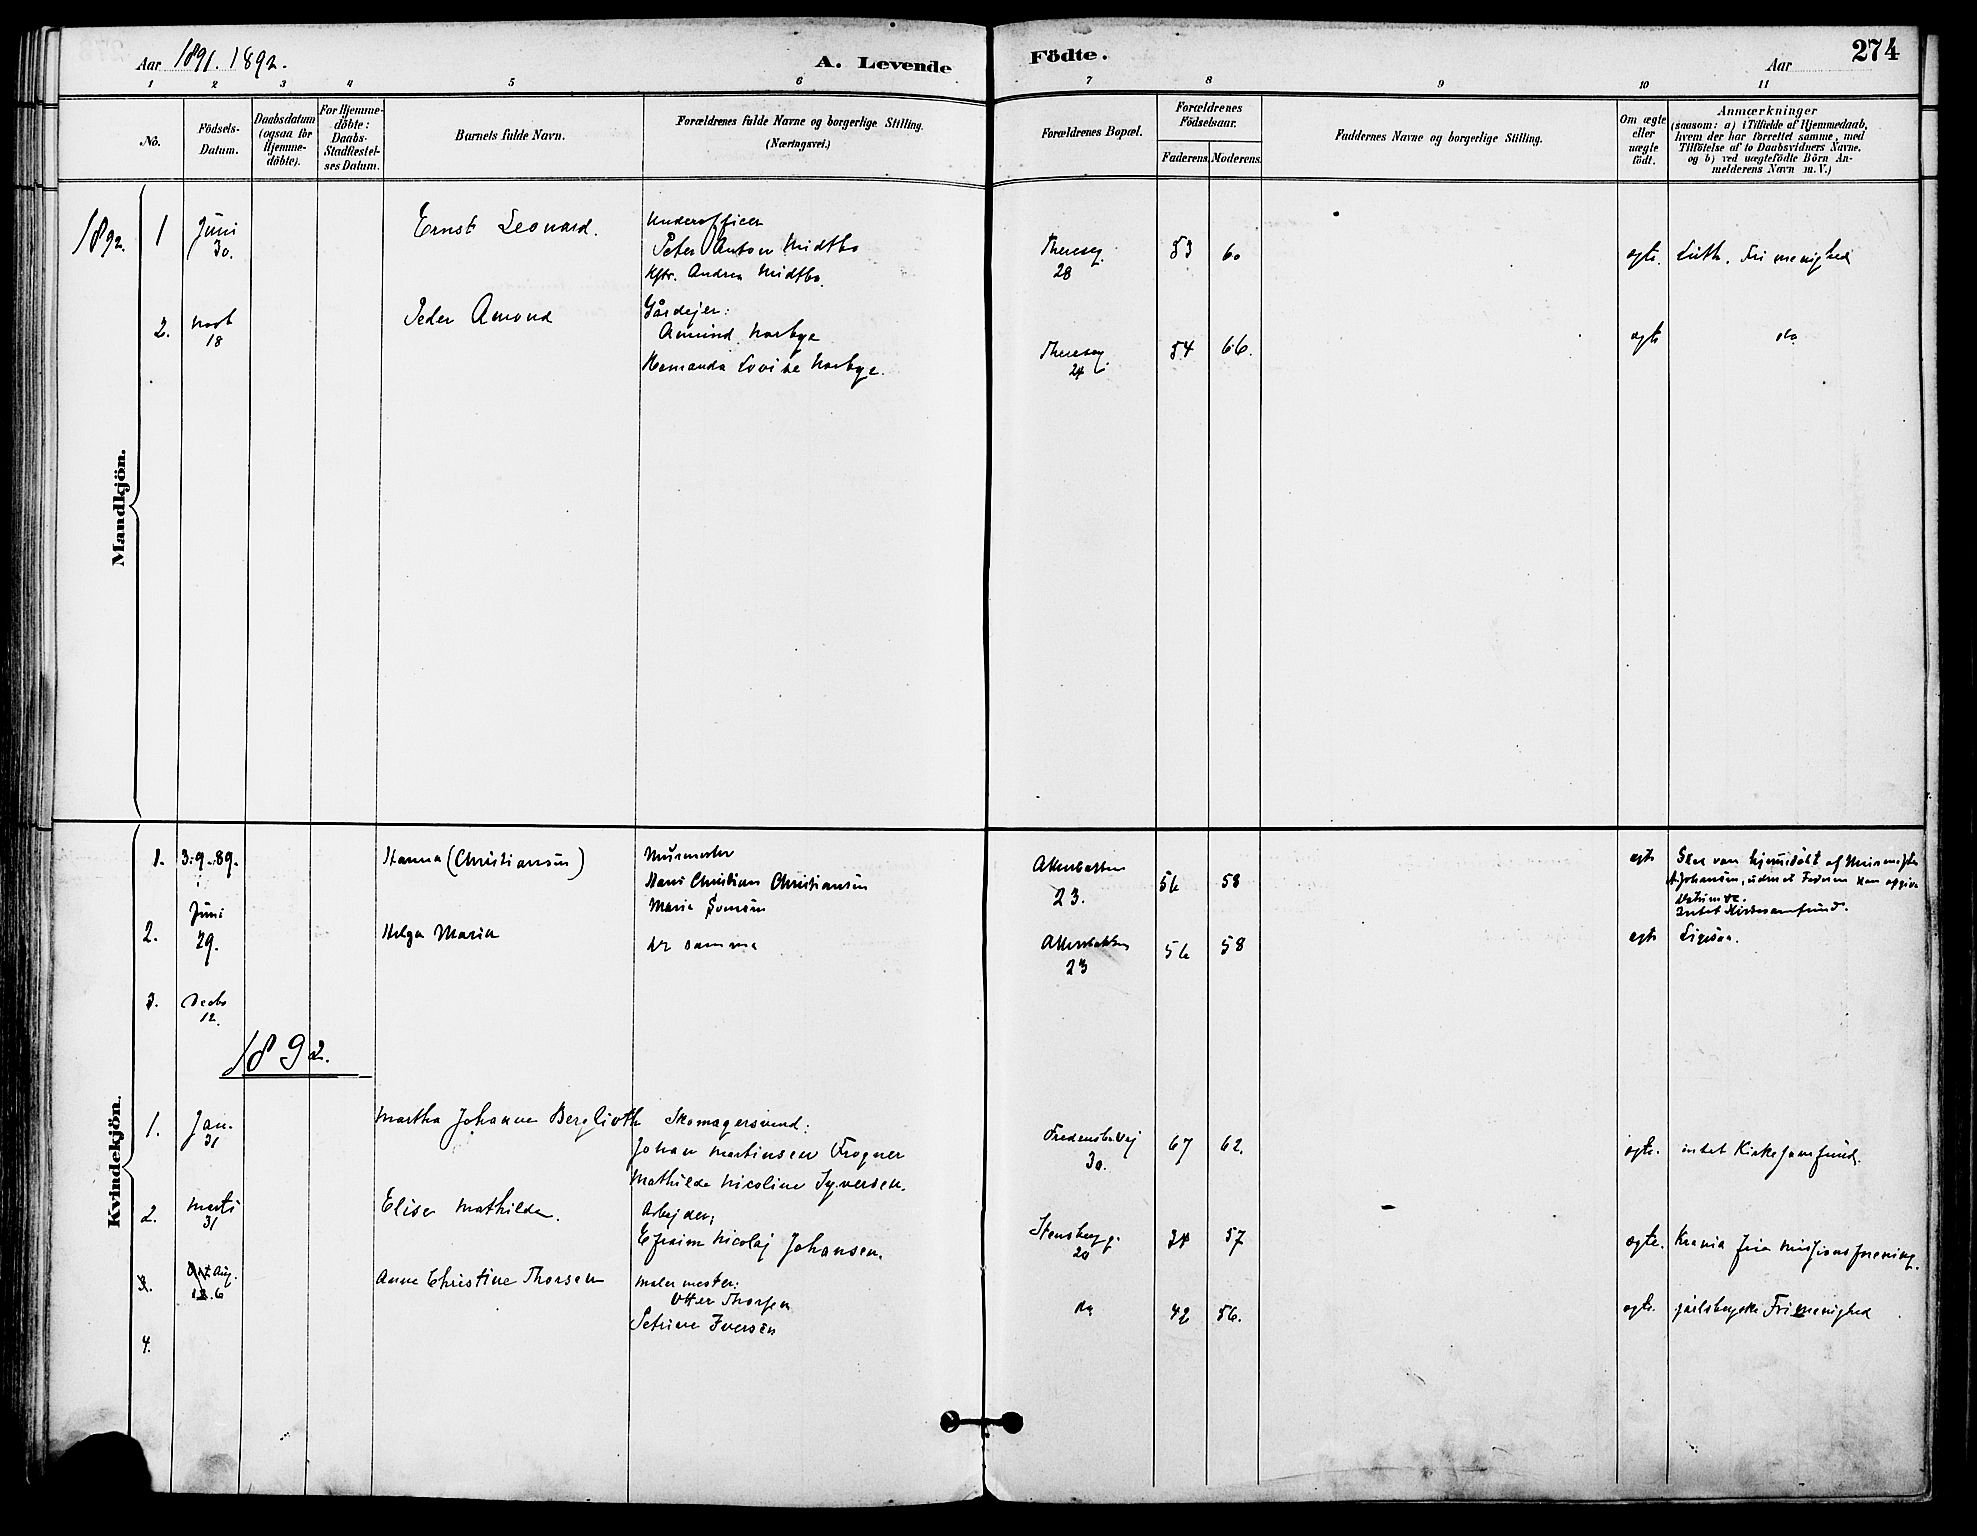 Aar 1891. 1892.
A. Levende
Födte.
Aar
274
1 2 3 4 5 6 7 8 9 10 11
No.
Födsels-
Datum.
Daabsdatum
(ogsaa for
Hjemme-
döbte).
For Hjemme-
döbte:
Daabs-
Stadfæstel-
ses Datum.
Barnets fulde Navn.
Forældrenes fulde Navne og borgerlige Stilling.
(Næringsvei.)
Forældrenes Bopæl.
Forældrenes
Födselsaar.
Faderens. Moderens.
Faddernes Navne og borgerlige Stilling.
Om ægte
eller
uægte
födt.
Anmærkninger
(saasom: a) i Tilfælde af Hjemmedaab,
hvem der har forrettet samme, med
Tilföielse af to Daabsvidners Navne.
og b) ved uægtefödte Börn An-
melderens Navn m. V.)
Mandkjön.
1892.
1 Juni
30.
Ernst Leonard.
Underofficer
Peter Anton Midtbo
Andrea Midtbo.
Thereseg.
28
53 60
egte. Luth. Frimenighed
2. Novb
18
Peder Amond
Gårdejer:
Amund Norbye
Lovise Norbye.
Thereseg.
24
54 66.
egte do
Kvindekjön.
1. 3.-9-.89.
Hanna (Christiansen)
Murmester
Hans Christian Christiansen
Maria
23.
56 58
egte
Skal være hjemmedøbt af Murmester
A Johansen, uden at Faderen kan opgive
Datum etc.
Intet Kirkesamfund.
2. Juni
29.
Helga Maria
de samme
23
56 58
egte Ligesaa.
3. Decbr
12.
1892.
1. Jan.
31
Martha Johanne Berglioth
Skomagersvend:
Johan Martinsen Frogner
Mathilde Nicoline Syversen.
30.
67 62.
egte. intet Kirkesamfund.
2. Marts
31
Elise Mathilde.
Arbejder;
Efraim Nicolaj Johansen.
Stensbergg.
20
34 57
egte. Krania frie Missionsforening.
3. Aug.
6
Anne Christine Thorsen
Malermester:
Otter Thorsen
Petrine Iversen
do
42 56.
egte. jarlsbergske Frimenighed
4.